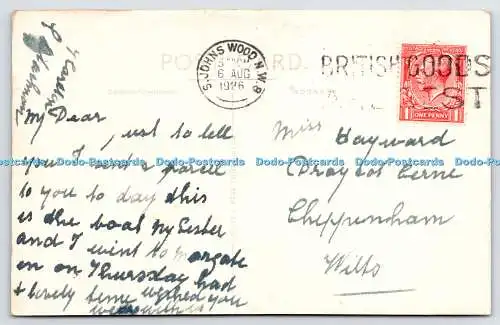 POST CARD
S. JOHNS WOOD. N.W.8
6 AUG
1926
BRITISH GOODS
ST
ONE PENNY
My Dear
just to tell
you I sent a parcel
to you to day this
is the boat my Sister
and I went to margate
on on Thursday had
a lovely time wished you
were with us
Miss Hayward
Draycot Cerne
Chippenham
Wilts
Dodo-Postcards Dodo-Postcards Dodo-Postcards Dodo-Postcards Dodo-Postcards Dodo-Postcards